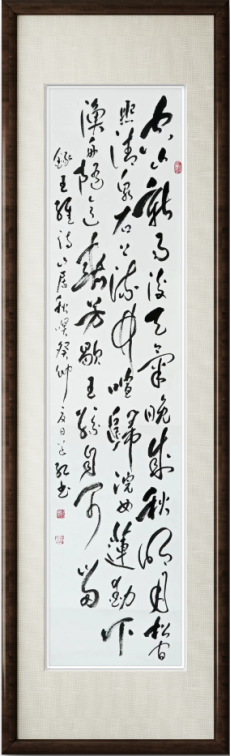 空山新雨后天气晚来秋明月松间
照清泉石上流竹喧归浣女莲动下
渔舟随意春芳歇王孙自可留
录王维诗山居秋暝癸卯夏日
书